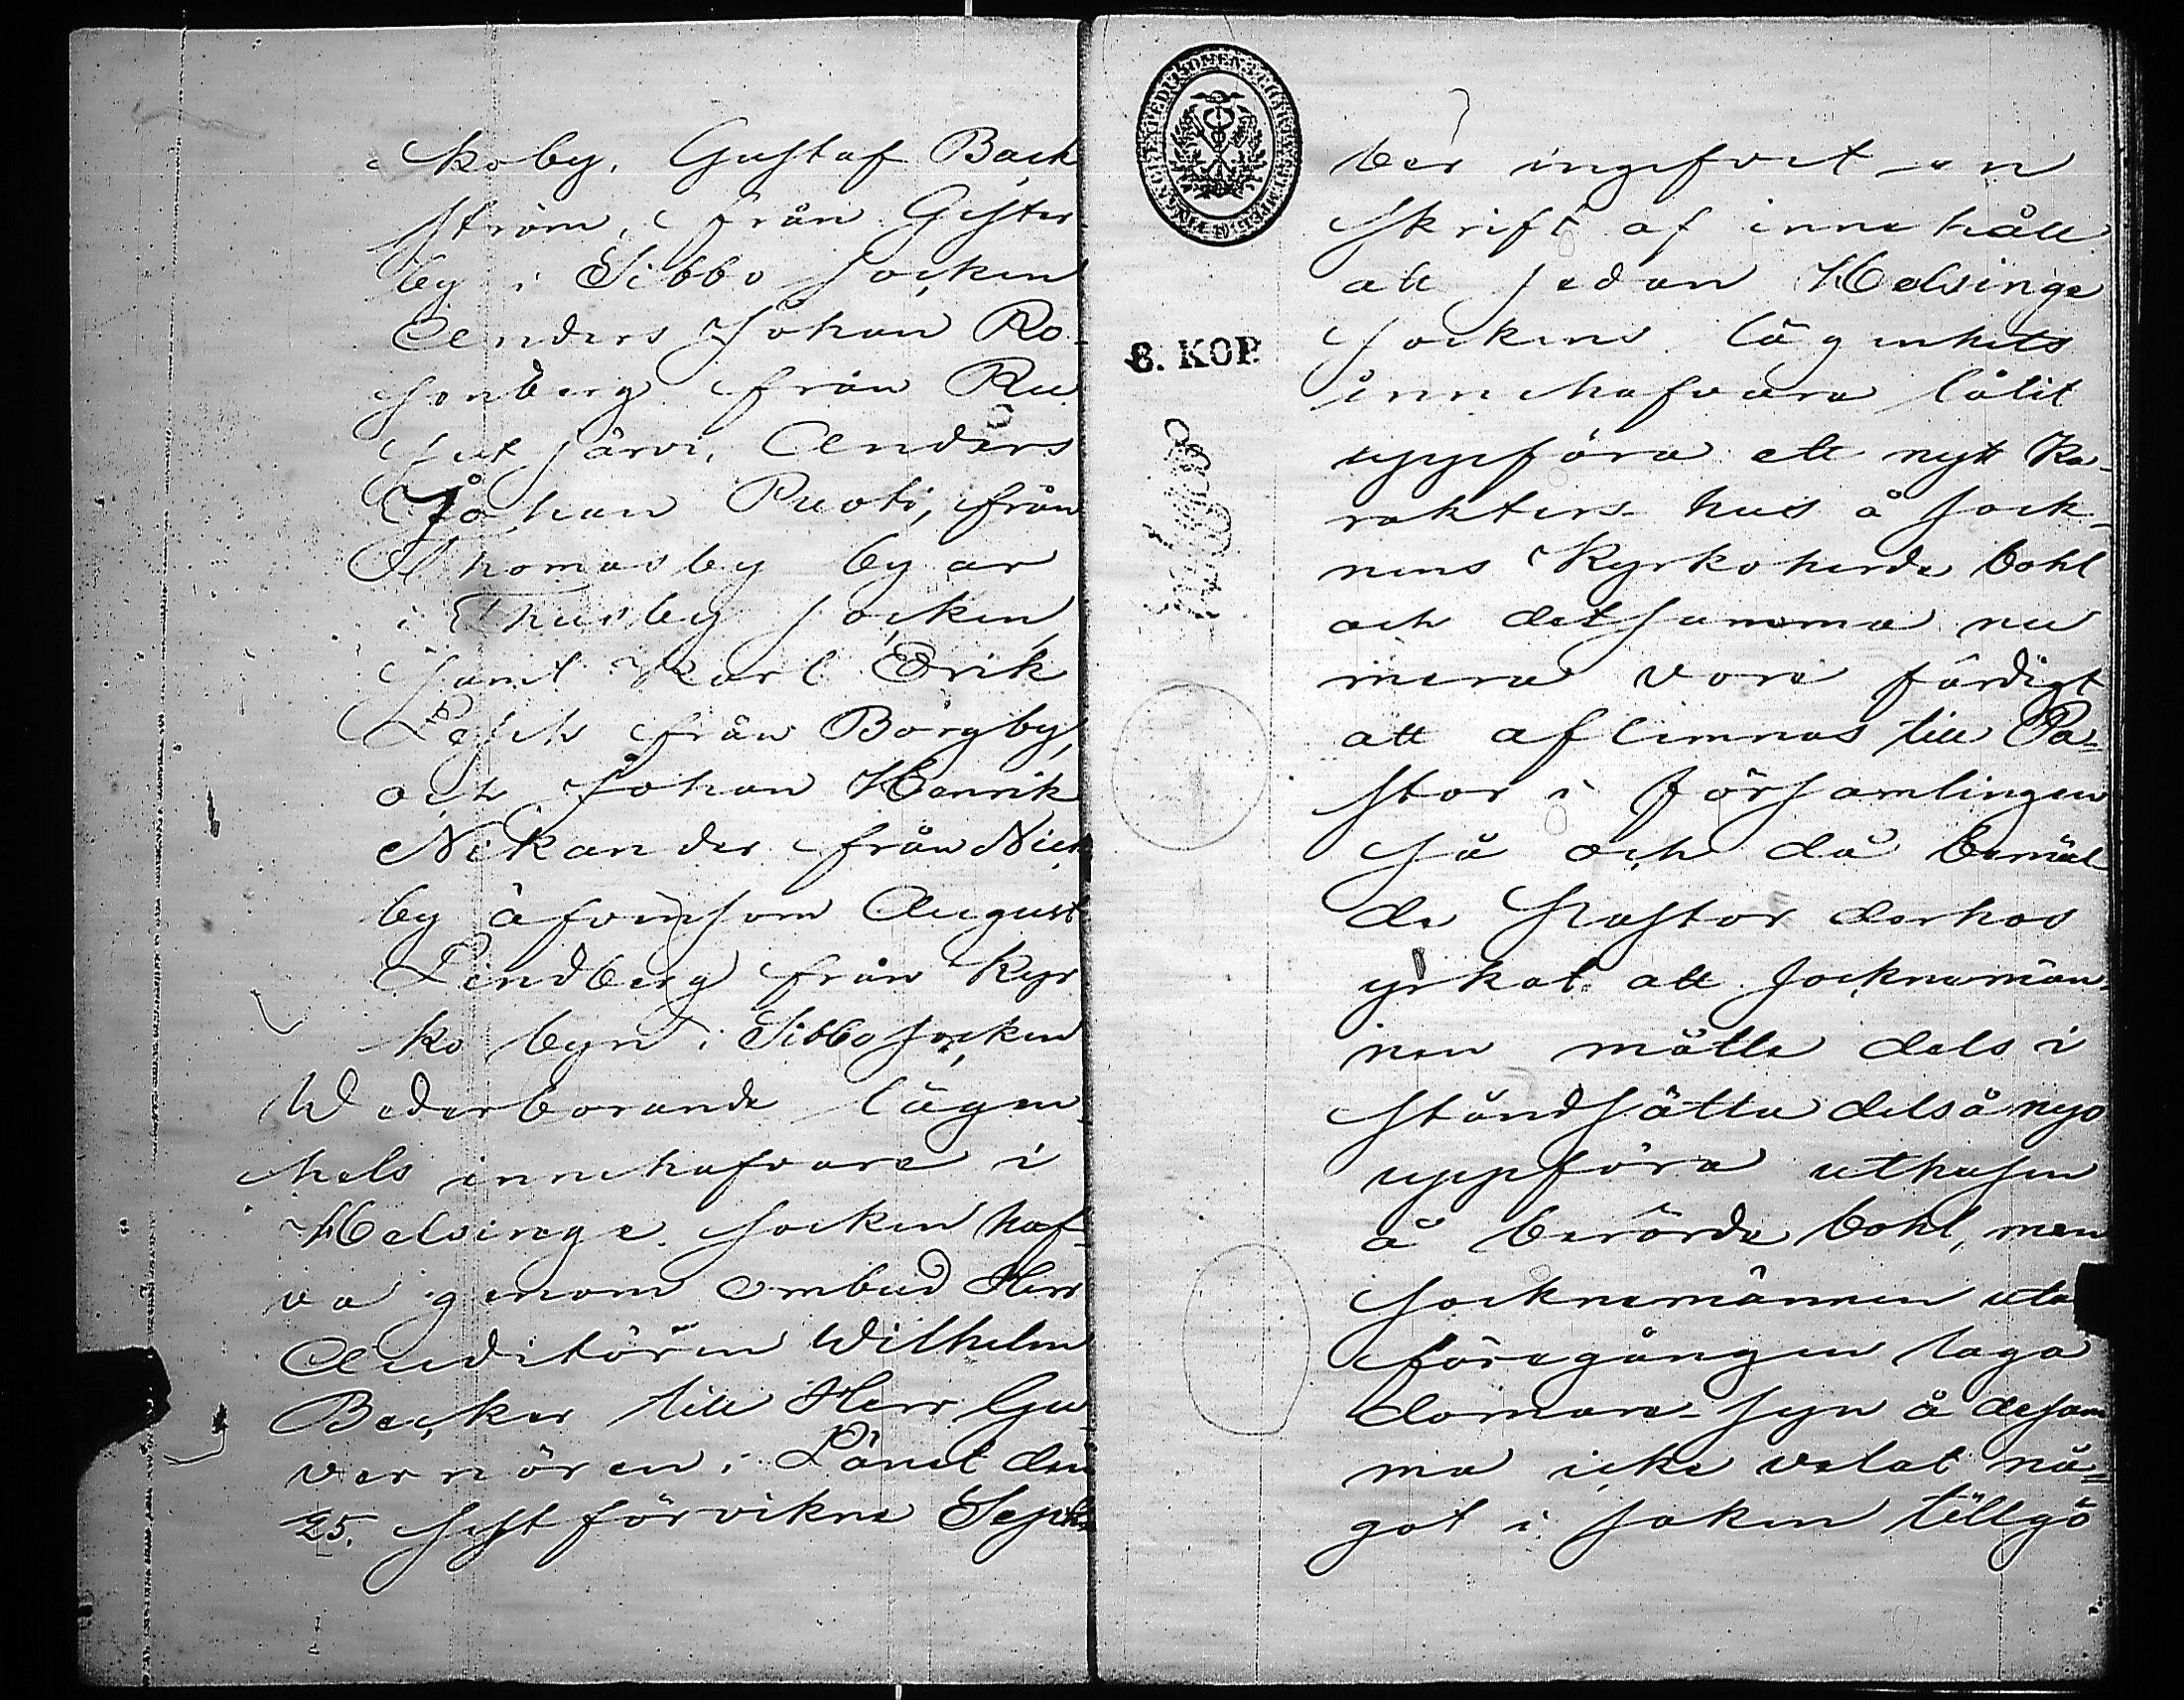 koby, Gustaf Back
ström, från Gister
by i Sibbo socken
Anders Johan Ro-
senberg från Ru
sutjärvi, Anders
Johan Puoti, från
Thomasby byar
i Thusby socken,
samt Karl Erik
från Borgby,
och Johan Henrik
Nikander från Nick
by äfvensom August
Lindberg från Kyr
kobyn i Sibbo socken
Wederborande lägen-
hets innehafvare i
Helsinge socken haf-
va genom ombud Herr
Auditören Wilhelm
Becker till Herr Gu
vernören i Länet den
25. sist förvikne Septem
8. KOP.
ber ingifvit en
skrift af innehåll
att sedan Helsinge
sockens lägenhets
innehafvare låtit
uppföra ett nytt Ka-
rakters hus å sock-
nens Kyrkoherde bohl
och detsamma nu
mera vore färdigt
att aflemnas till Pa-
stor i församlingen
så och då bemäl
de Pastor derhos
yrkat att socknemän-
nen måtte dels i
ståndsätta dels å nyo
uppföra uthusen
å berörde bohl, men
socknemännen utan
föregången laga
domare-syn å desam
ma icke velat nå-
got i saken tillgö